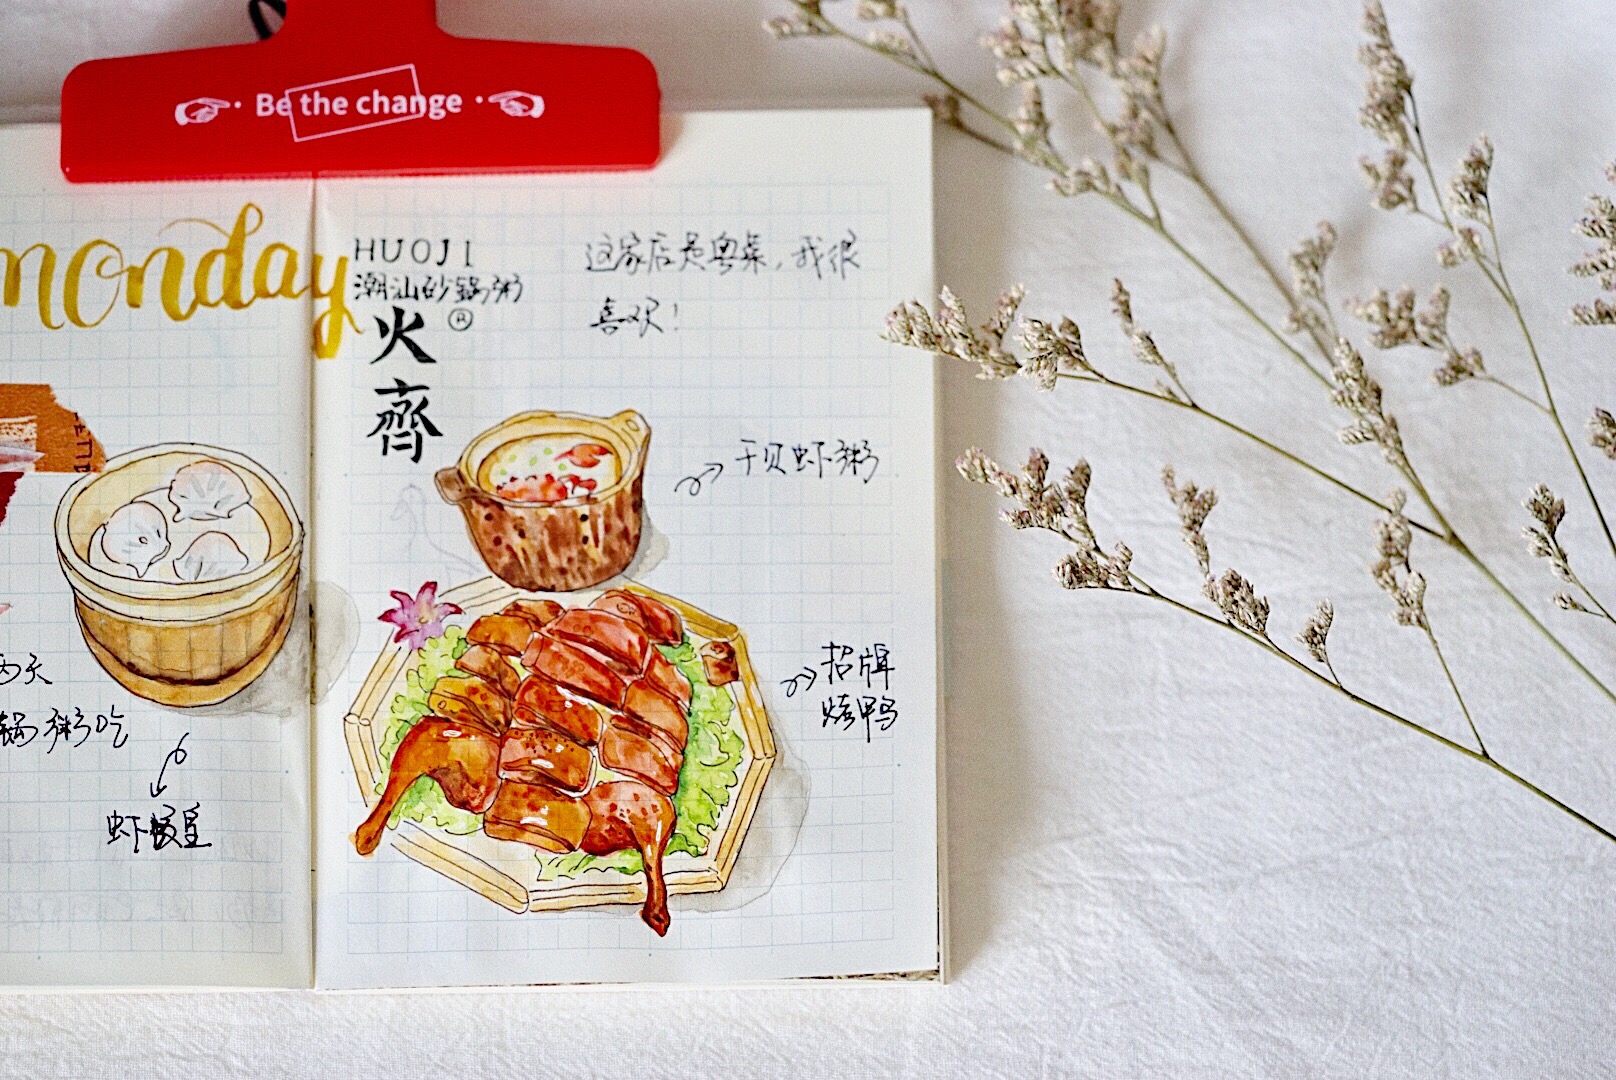 Be the change
monday
两天
锅粥吃
虾饺皇
HUOJI
潮汕砂锅粥
火齊
®
这家店是粤菜，我很
喜欢！
干贝虾粥
招牌
烤鸭